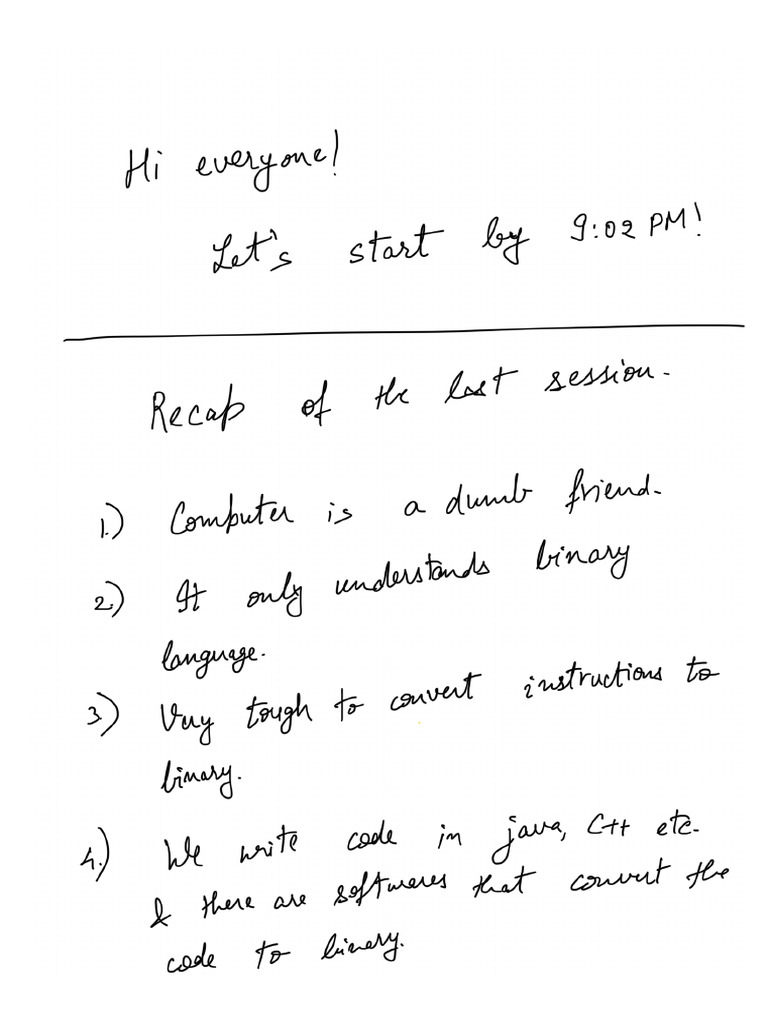 Hi everyone!
Let's start by 9:02 PM!
Recap of the last session.
1.) Computer is a dumb friend.
2.) It only understands binary
language.
3.) Very tough to convert instructions to
binary.
4.) We write code in java, C++ etc.
& there are softwares that convert the
code to binary.